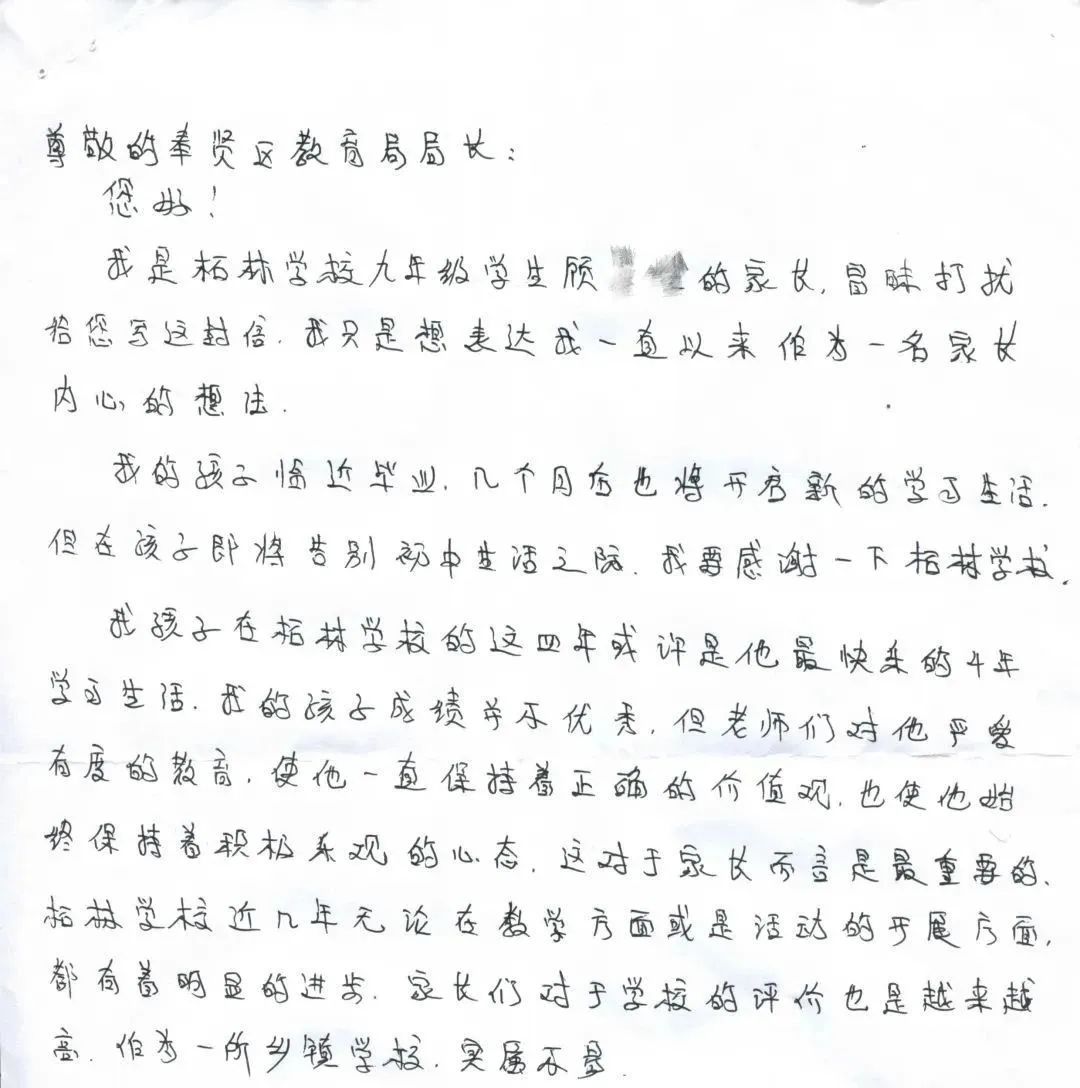 尊敬的奉贤区教育局局长：
您好！
我是柘林学校九年级学生顾 的家长，冒昧打扰
给您写这封信．我只是想表达我一直以来作为一名家长
内心的想法．
我的孩子临近毕业．几个月后也将开启新的学习生活．
但在孩子即将告别初中生活之际．我要感谢一下柘林学校．
我孩子在柘林学校的这四年或许是他最快乐的4年
学习生活．我的孩子成绩并不优秀．但老师们对他严爱
有度的教育．使他一直保持着正确的价值观．也使他始
终保持着积极乐观的心态．这对于家长而言是最重要的．
柘林学校近几年无论在教学方面或是活动的开展方面．
都有着明显的进步．家长们对于学校的评价也是越来越
高．作为一所乡镇学校．实属不易．